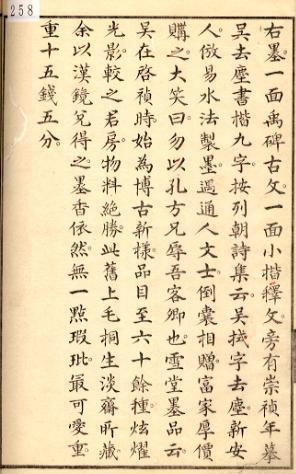 258
右墨一面禹碑古文一面小楷釋文旁有崇禎年摹
吳去塵書楷九字按列朝詩集云吳拭字去塵新安
人倣易水法製墨遇通人文士倒囊相贈富家厚價
購之大笑曰勿以孔方兄辱吾客卿也雪堂墨品云
吳在啓禎時始為博古新樣品目至六十餘種炫耀
光影較之君房物料絕勝此舊上毛桐生淡齋所藏
余以漢鏡兄得之墨香依然無一點瑕玼最可愛重
重十五錢五分